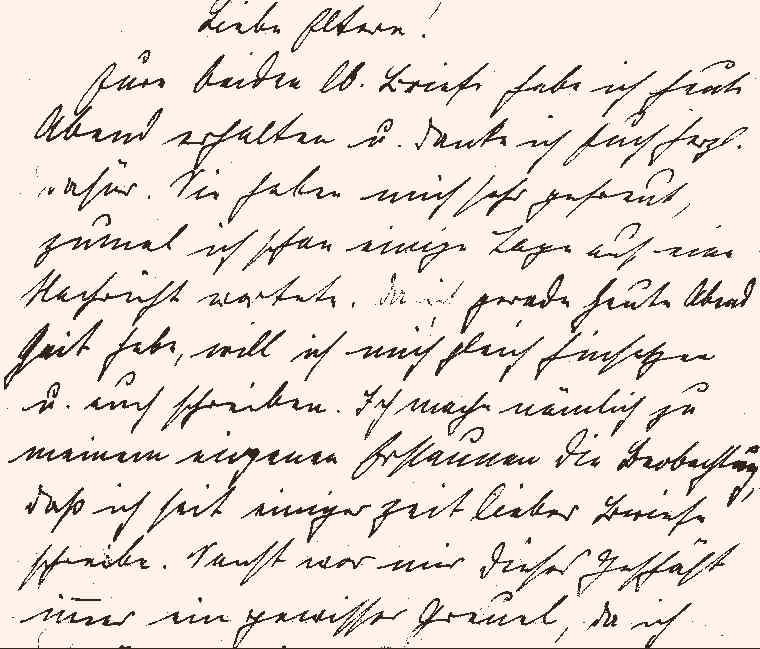 Liebe Eltern!
Eure beiden lb. Briefe habe ich heute
Abend erhalten u. danke ich Euch herzl.
dafür. Sie haben mich sehr gefreut,
zumal ich schon einige Tage auf eine
Nachricht wartete. Da ich gerade heute Abend
Zeit habe, will ich mich gleich hinsetzen
u. auch schreiben. Ich mache nämlich zu
meinem eigenen Erstaunen die Beobachtung,
daß ich seit einiger Zeit lieber Briefe
schreibe. Sonst war mir dieses Geschäft
immer ein gewisser Greuel, da ich